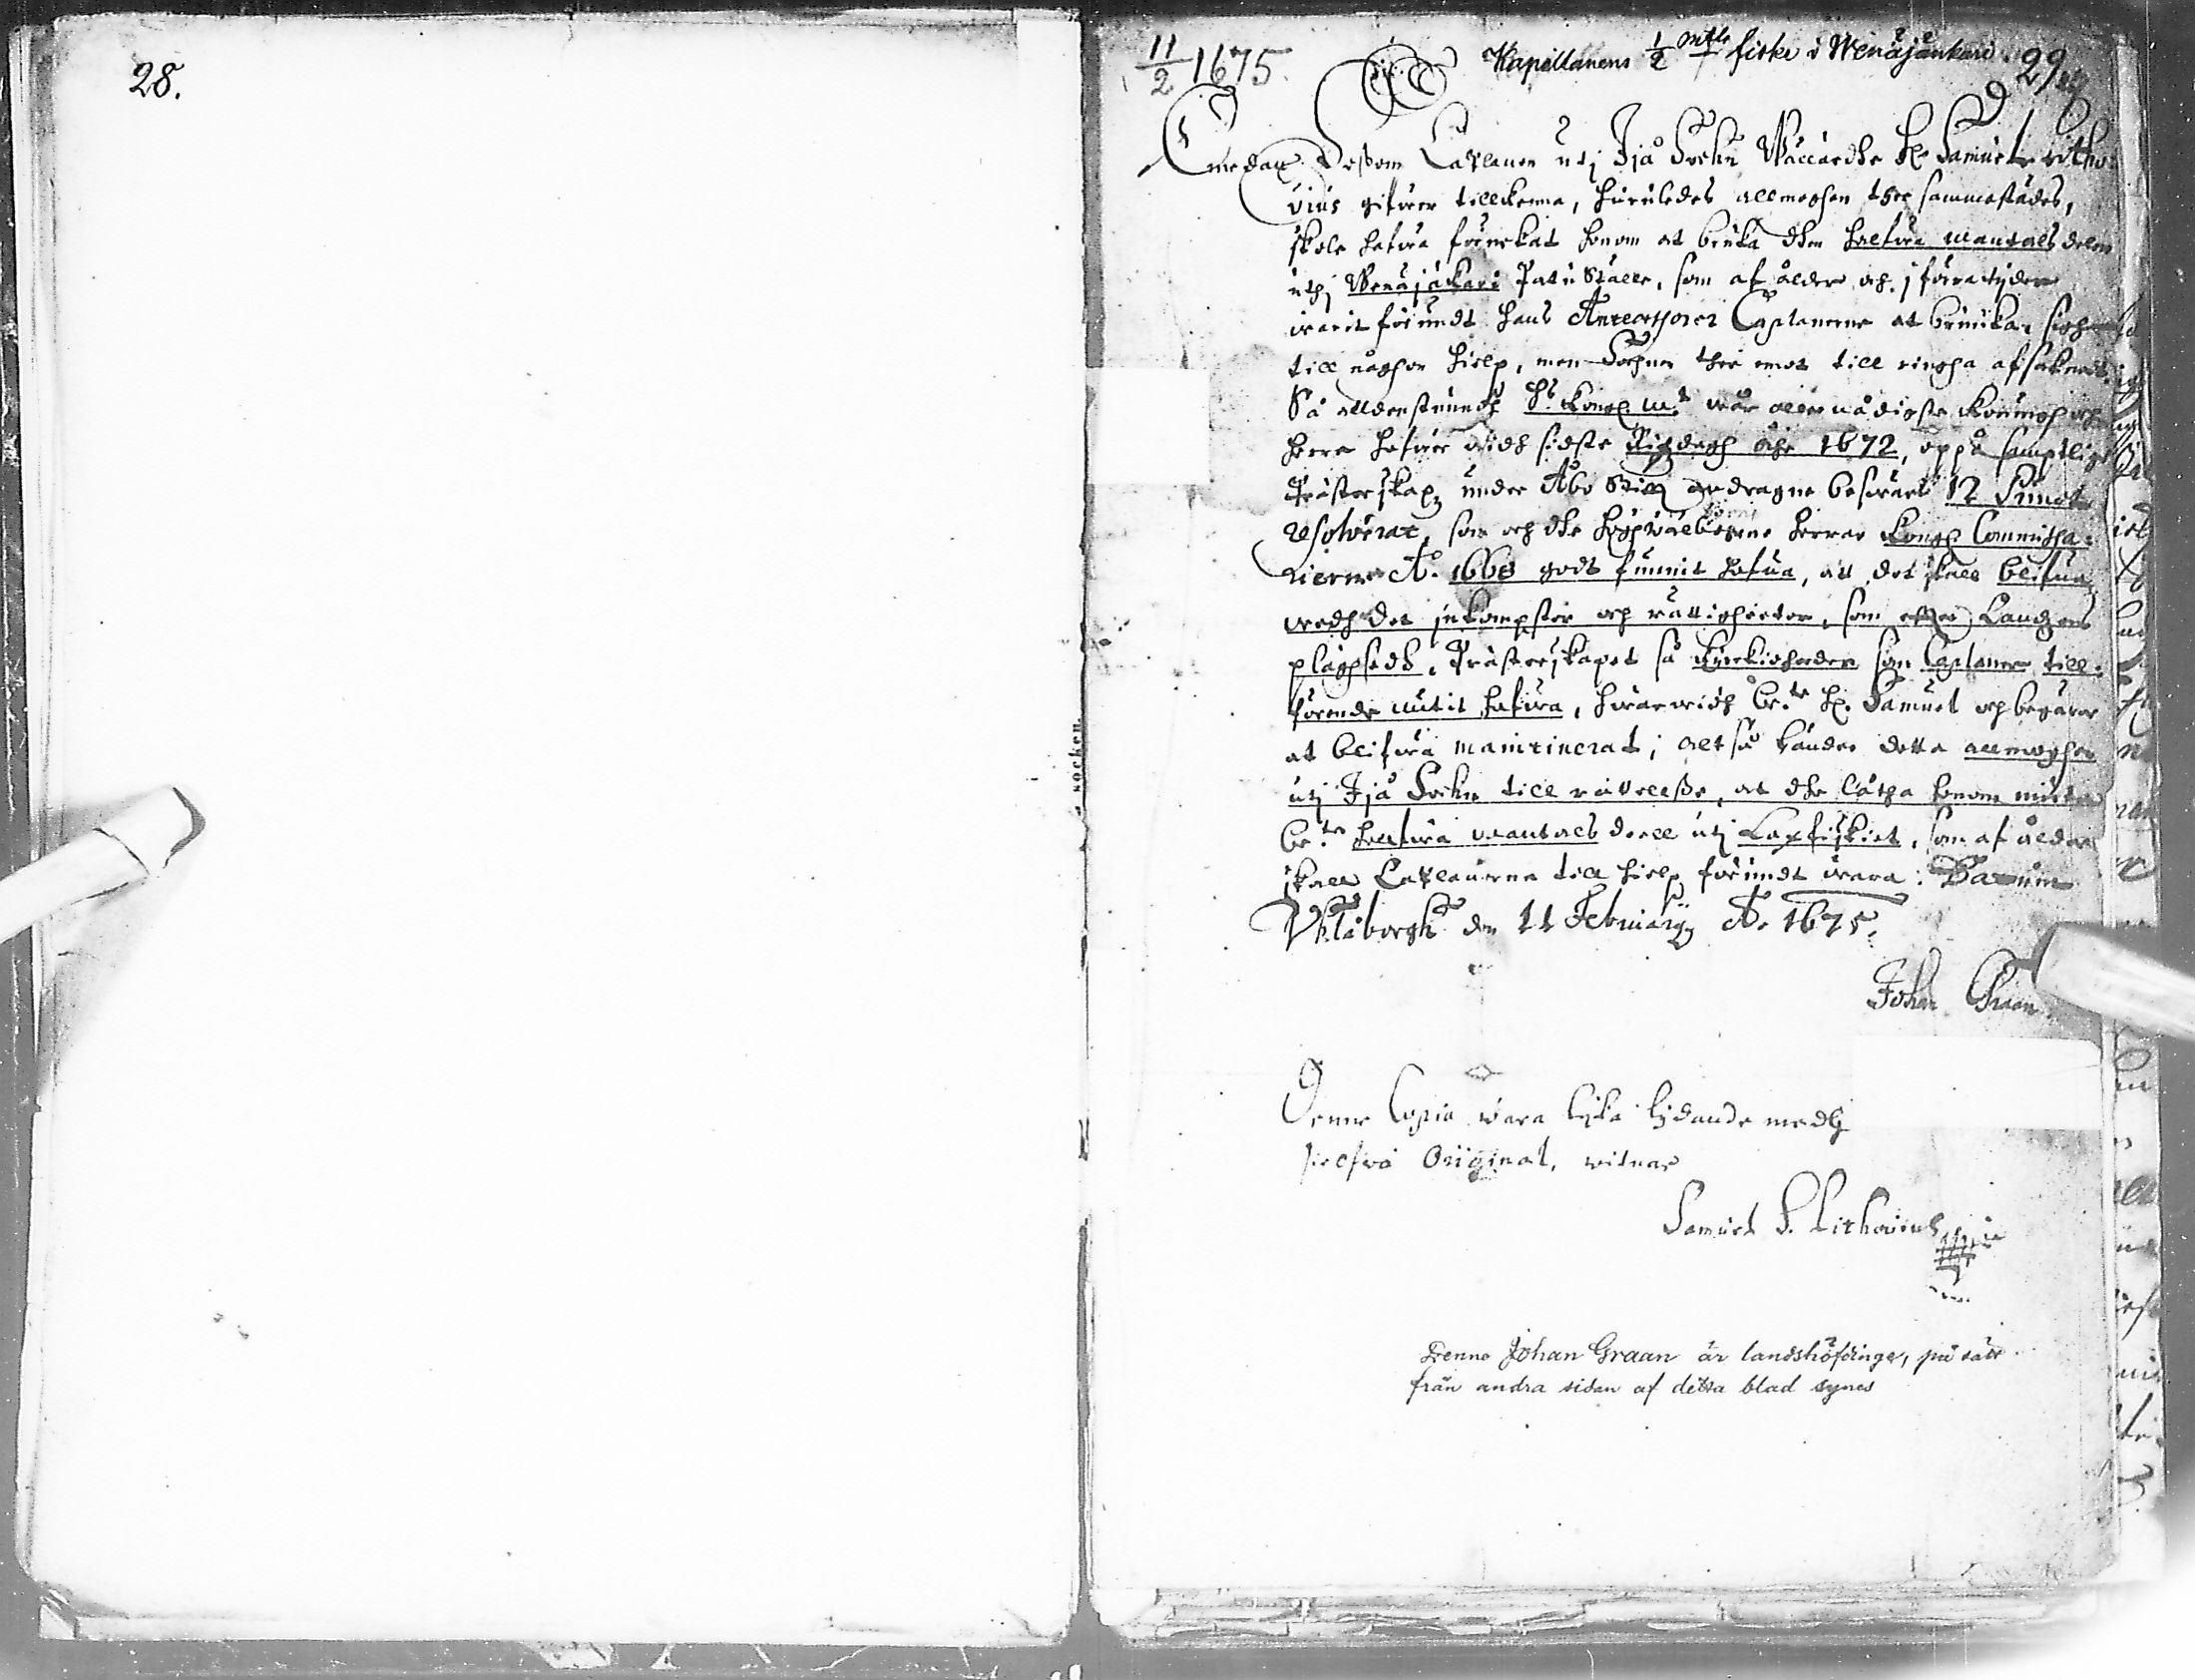 28.
11/2 1675.
Kapellanens 1/2 mtls fiske i Wenäjänkari.
29
Emedan Deßom Caplanen utj Ijå Sochn Wällärde H. Samuel Litho-
vius gifwer tillkenna, huruledes allmoghen ther sammastädes,
skole hafwa förnekat honom at bruka dhen halfwa mantals delen
uthj Wenäjäkari Patu Ställe, som af ålder och j förra tijder
warit förundt hans Antecessorer Caplanerne at bruuka, sigh
till någhon hielp, men Sochnen ther emot till ringha afsaknadt.
Så alldenstundh H. Kongl. M:t wår allernådigste Konungh och
Herre hafwer widh sidste Rigzdagh åhr 1672, oppå samptlige
Prästerskapz under Åbo Stifft andragne beswärs 12 Punct
resolverat, som och dhe höghwälborne herrar Kongl. Commissa-
rierne A:o 1668 godt funnit hafua, att det skall blifua
wedh det inkompster och rättigheeter, som effter Landzens
pläghsedh, Prästerskapet så Kyrkioherden som Caplaner till-
förende nutit hafwa, hwarwidh be:te H. Samuel och begärar
at blifwa maintinerat; altså länder detta allmoghen
utj Ijå Sochn till rättelsse, at dhe låtha honom niuta
be:te halfwa mantals deell utj Laxfiskiet, som af ålder
skall Caplanerna till hielp förundt wara. Datum
Uhlåborgh den 11 Februarij A:o 1675.
Johan Graan
Denne Copia wara lijka lydande medh
sielfwa Original, witnar
Samuel S. Lithovius
Denne Johan Graan är landshöfdinge, på sätt
från andra sidan af detta blad synes
socken.